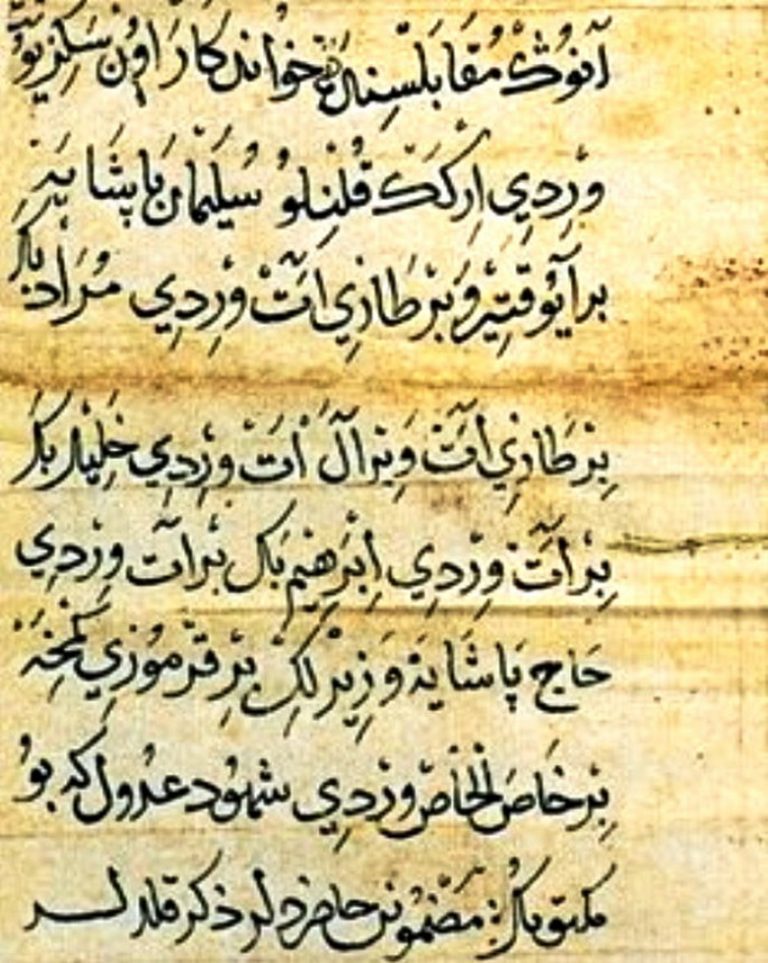 آنوُكْ مُقَابَلَسِنْدَه خُوانْدكَارَ اوُن سَكِزْ يوُزْ
وِرْدِي اِرْكَكْ قُلِنْلوُ سُلَيْمَان پَاشَايَه
بر آيوُقتِيرْ وَ بِرْ طَازِي اَتْ وِرْدِي مُرَادْ بَكَ
بِرْ طَازِي اَتْ وَ بِرْ آلْ اَتْ وِرْدِي خَلِيلْ بَكَ
بِرْ اَتْ وِرْدِي اِبْرَهِيمْ بَكَ بِرْ اَتْ وِرْدِي
حَاجِ پَاشَايَه وَزِيرْلِكْ بِرْ قِرْمُوزِي كَمْخَه
بِرْ خَاصَ لْخَاصْ وِرْدِي شهود عدول كه بوُ
مكتوبك مَضْمُونن حاضردلر ذكر قلدلر